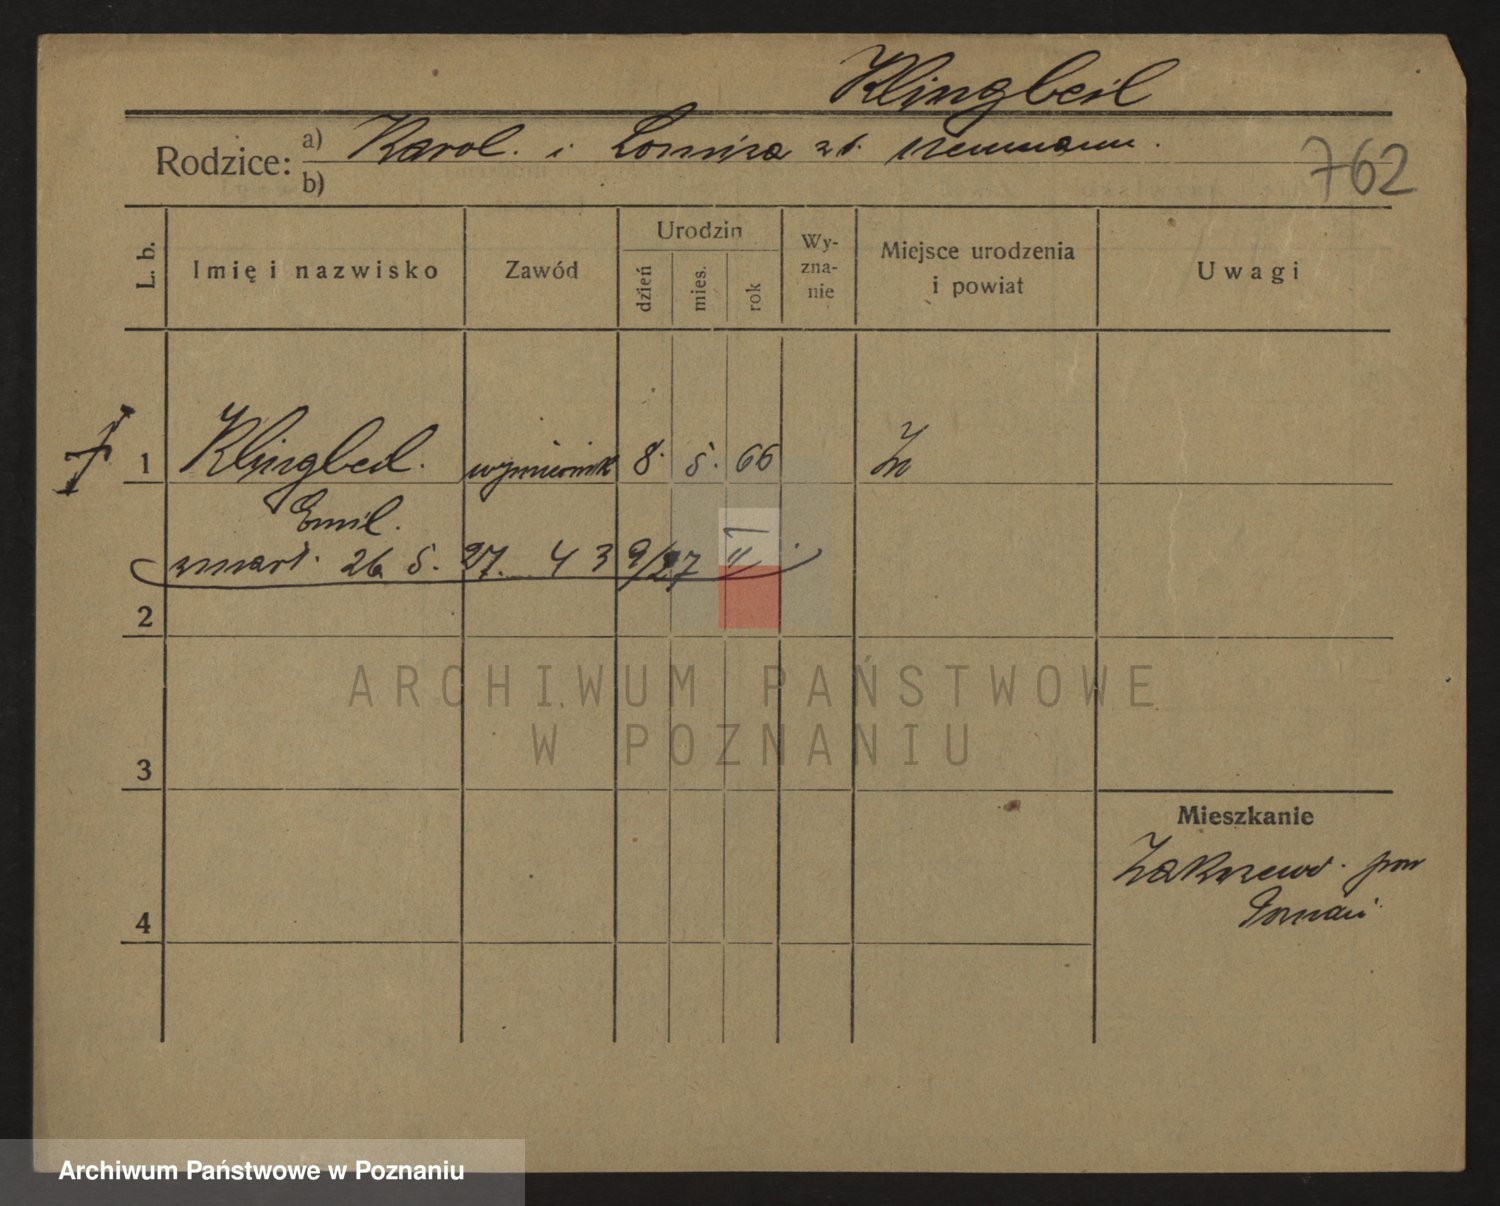 Klingbeil
Rodzice: a) Karol. i Louisa z d. Neumann.
b)
762
L. b. Imię i nazwisko Zawód Urodzin dzień mies. rok Wyznanie Miejsce urodzenia i powiat Uwagi
1 Klingbeil. wymiernik 8. 5. 66
Emil.
zmarł. 26 5. 27. 439/27 II
2
3
4
Mieszkanie
Zakrzewo. pow
Poznań
ARCHIWUM PAŃSTWOWE
W POZNANIU
Archiwum Państwowe w Poznaniu